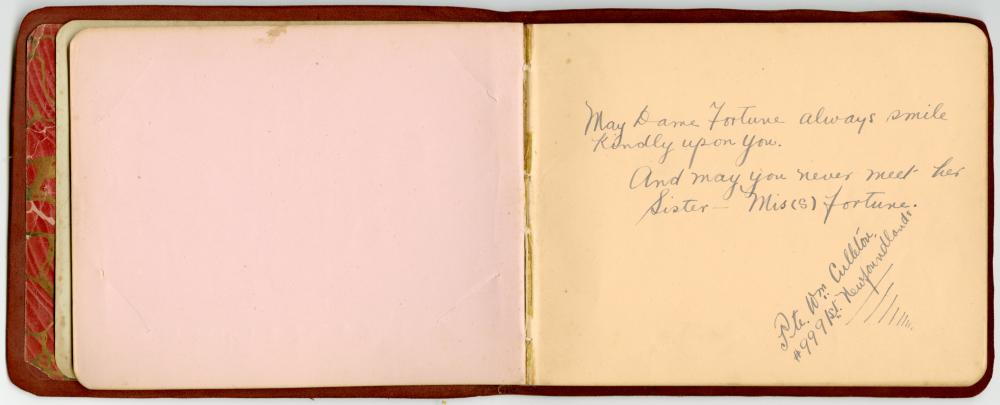 May Dame Fortune always smile
Kindly upon You.
And may you never meet her
Sister — Mis(s) fortune.
Pte. Wm Culleton.
#999 1st. Newfoundlands